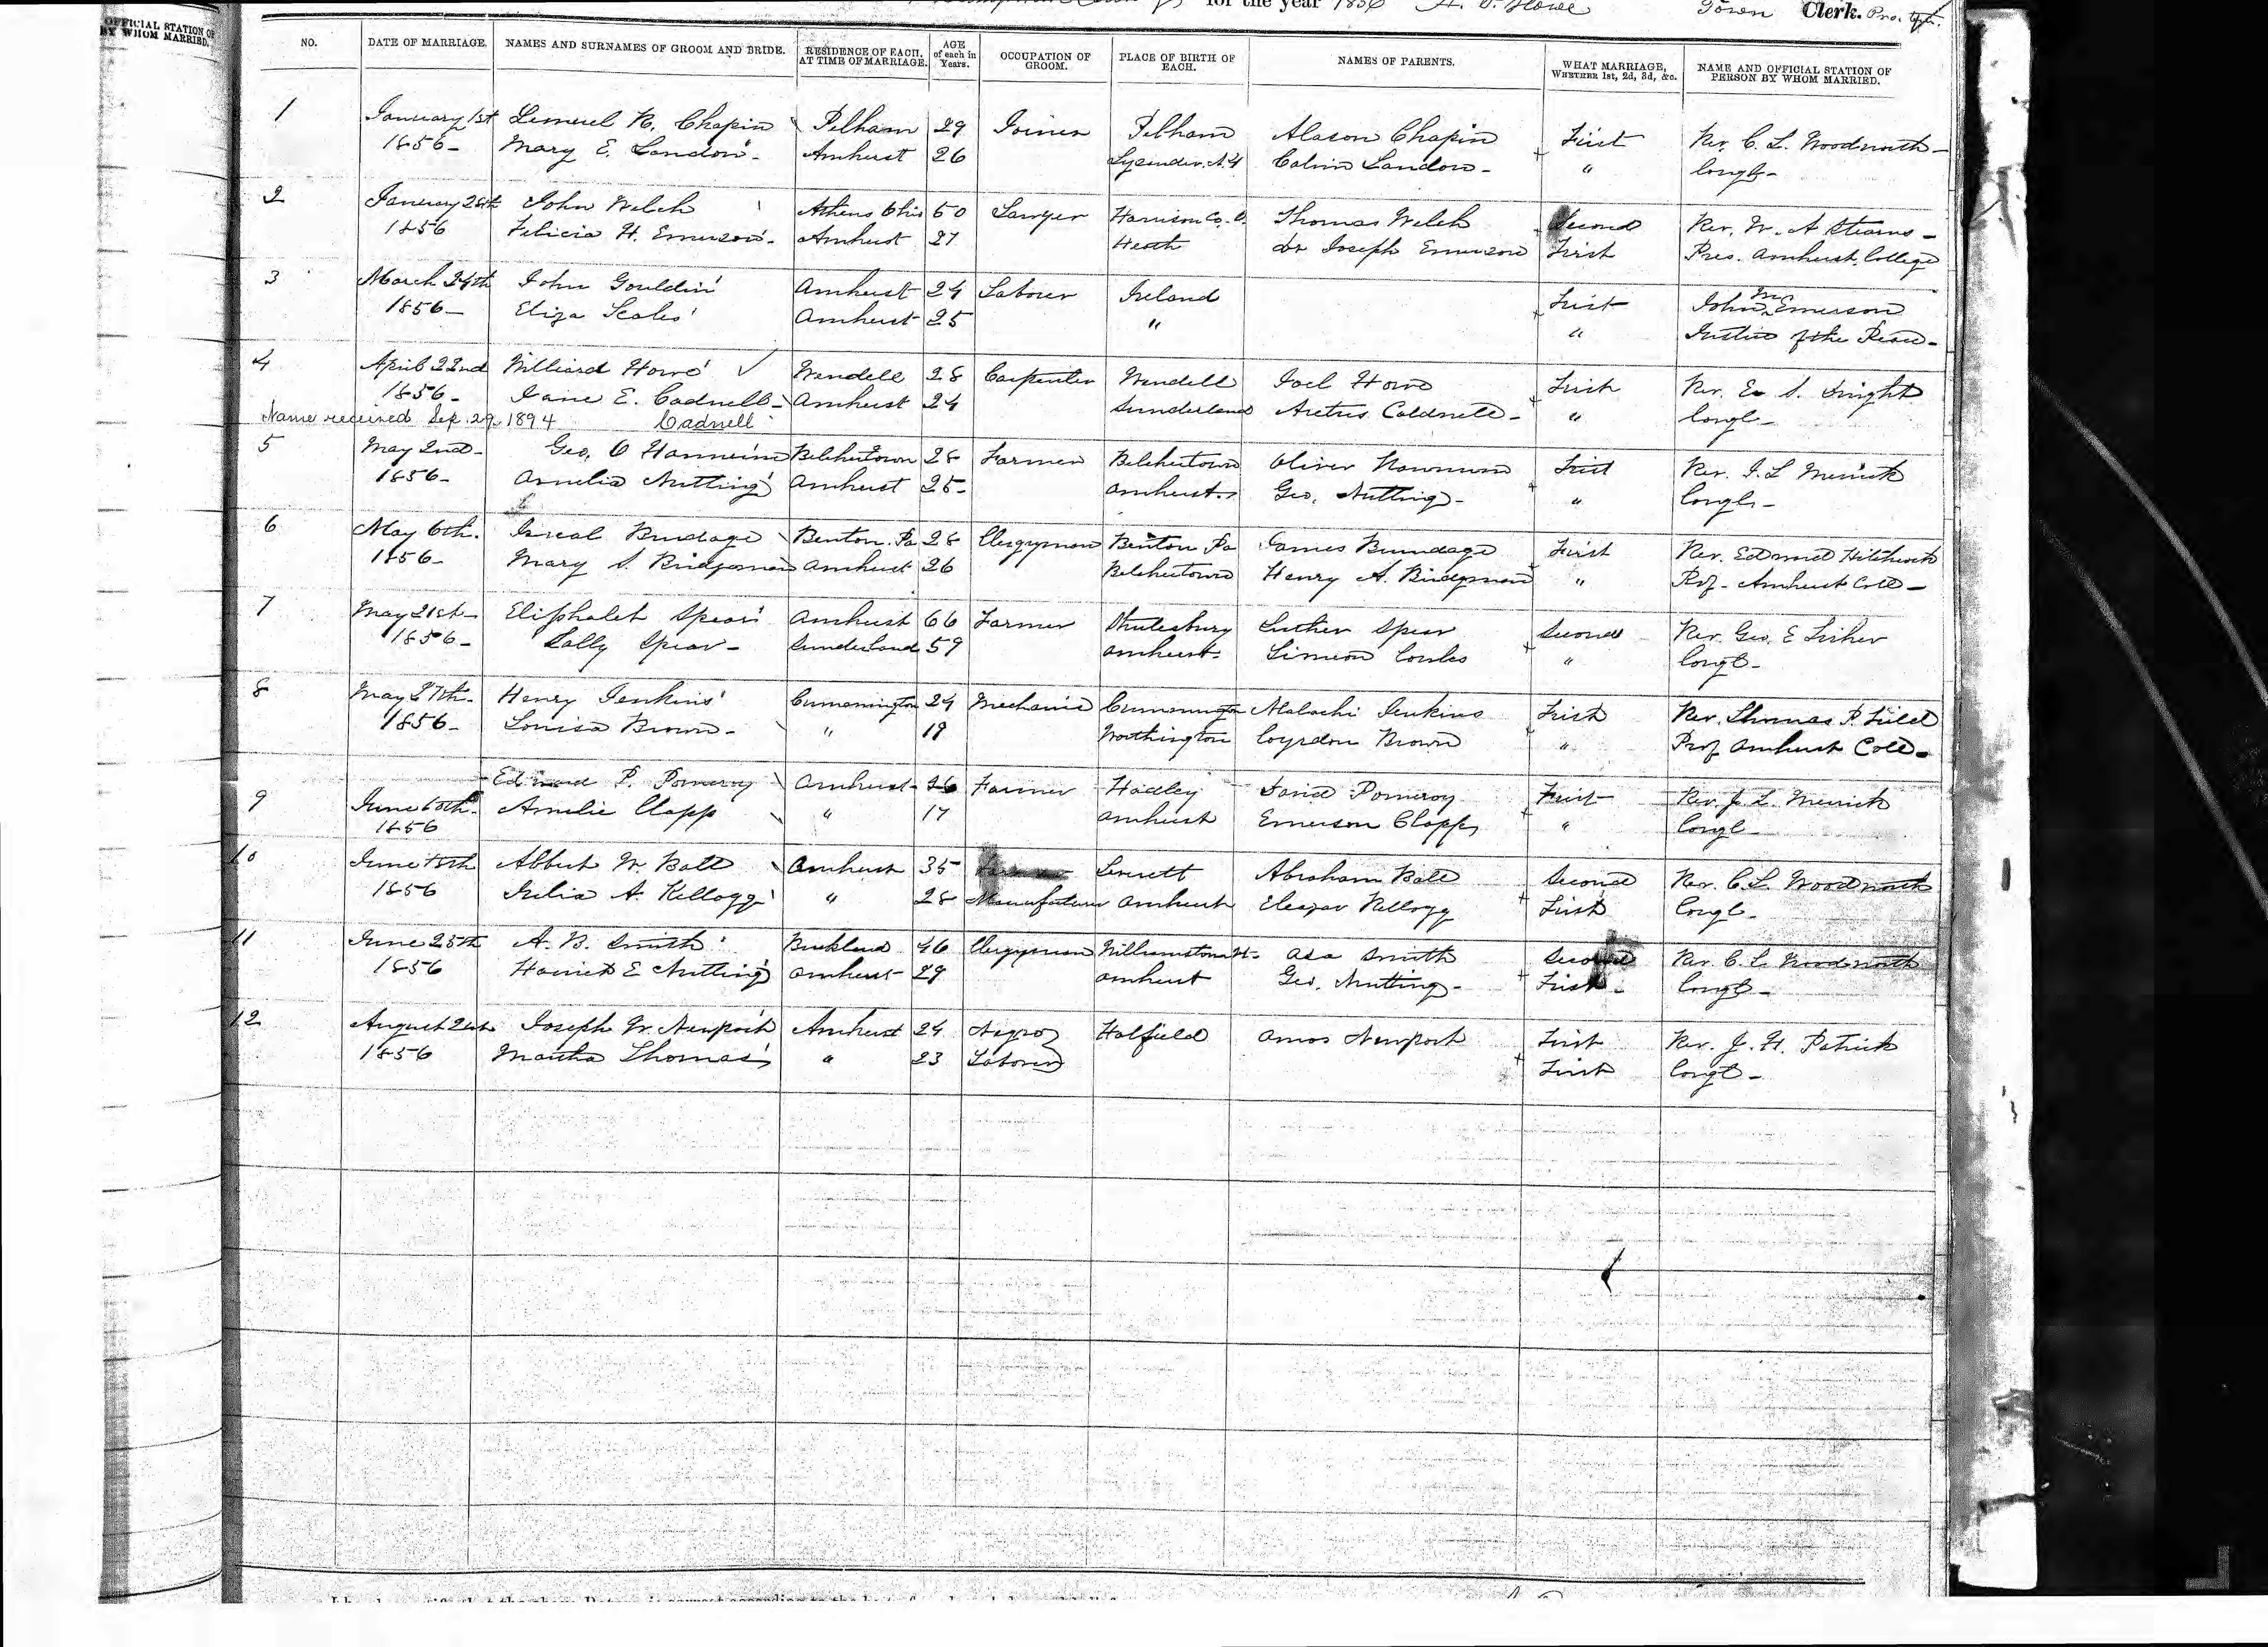 OFFICIAL STATION OF
BY WHOM MARRIED.
for the year 1856 Town Clerk. Pro. tem.
NO. DATE OF MARRIAGE. NAMES AND SURNAMES OF GROOM AND BRIDE. RESIDENCE OF EACH, AT TIME OF MARRIAGE. AGE of each in Years. OCCUPATION OF GROOM. PLACE OF BIRTH OF EACH. NAMES OF PARENTS. WHAT MARRIAGE, WHETHER 1st, 2d, 3d, &c. NAME AND OFFICIAL STATION OF PERSON BY WHOM MARRIED.
1 January 1st Lemuel R. Chapin Pelham 29 Joiner Pelham Alason Chapin First Rev. C. L. Woodworth
1856 Mary E. Landon Amherst 26 Lysander. N.Y Calvin Landon " Congl.
2 January 28th John Welch Athens Ohio 50 Lawyer Harrison Co. O. Thomas Welch Second Rev. W. A Stearns
1856 Felicia H. Emerson Amherst 27 Heath Dr Joseph Emerson First Pres. Amherst College
3 March 24th John Gouldin Amherst 24 Laborer Ireland First John M. Emerson
1856 Eliza Scales Amherst 25 " " Justice of the Peace
4 April 22nd Williard Howe Wendell 28 Carpenter Wendell Joel Howe First Rev. E. S. Dwight
1856 Jane E. Cadnell Amherst 24 Sunderland Aretus Coldnell " Congl
Name received Sep. 29. 1894 Cadwell
5 May 2nd Geo. O Hannum Belchertown 28 Farmer Belchertown Oliver Hannum First Rev. J. L Merrick
1856 Amelia Nutting Amherst 25 Amherst Geo. Nutting " Congl
6 May 6th. Isreal Brundage Benton. Pa 28 Clergyman Benton Pa James Brundage First Rev. Edward Hitchcock
1856 Mary S. Bridgeman Amherst 26 Belchertown Henry A. Bridgeman " Prof. Amherst Coll
7 May 21st Eliphalet Spear Amherst 66 Farmer Shutesbury Luther Spear Second Rev. Geo. E Fisher
1856 Sally Spear Sunderland 59 Amherst Simeon Cowles " Congl
8 May 27th. Henry Jenkins Cummington 24 Mechanic Cummington Malachi Jenkins First Rev. Thomas P. Field
1856 Louisa Brown " 19 Worthington Coyrdon Brown " Prof Amherst Coll
Edward P. Pomeroy Amherst 26 Farmer Hadley David Pomeroy First Rev. J. L. Merrick
9 June Amelie Clapp " 17 Amherst Emerson Clapp " Congl
1856
10 June Albert W. Ball Amherst 35 Leverett Abraham Ball Second Rev. C. L. Woodworth
1856 Julia A. Kellogg " 28 Manufacturer Amherst Eleazar Kellogg First Congl
11 June 25th A. B. Smith Buckland 46 Clergyman Williamstown Vt Asa Smith Second Rev. C. L. Woodworth
1856 Harriet E Nutting Amherst 29 Amherst Geo. Nutting First Congl
12 August 21st Joseph W. Newport Amherst 24 Negro Hatfield Amos Newport First Rev. J. H. Patrick
1856 Martha Thomas " 23 Laborer First Congl